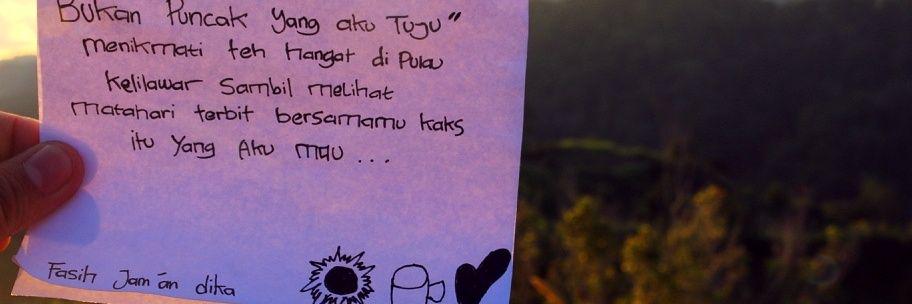 Bukan Puncak Yang aku Tuju"
menikmati teh Hangat di Pulau
Kelilawar Sambil melihat
Matahari terbit bersamamu kaks
itu Yang Aku mau ...
Fasih Jam'an dika